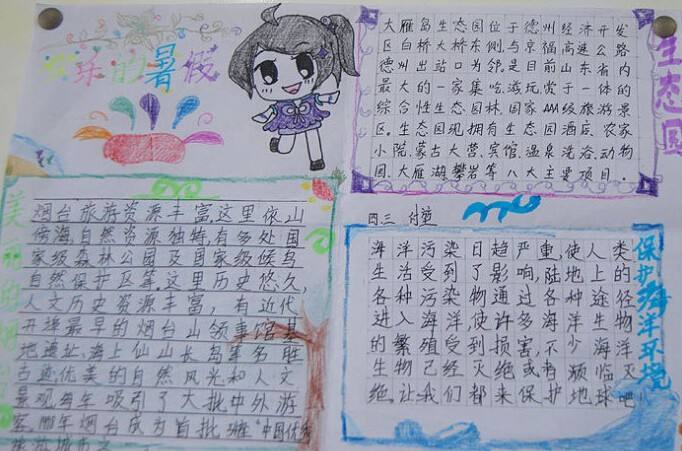 欢乐的暑假
大雁岛生态园位于德州经济开发
区白桥大桥东侧,与京福高速公路
德州出站口为邻,是目前山东省内
最大的一家集吃游玩赏于一体的
综合性生态园林,国家AAA级旅游景
区。生态园现拥有生态园酒店、农家
小院、蒙古大营、宾馆、温泉洗浴、动物
园、大雁湖、攀岩等八大主要项目。
生态园
美丽的烟台
烟台旅游资源丰富,这里依山
傍海,自然资源独特,有多处国
家级森林公园及国家级候鸟
自然保护区等。这里历史悠久,
人文历史资源丰富,有近代
开埠最早的烟台山领事馆基
地遗址、海上仙山长岛等多胜
古迹,优美的自然风光和人文
景观每年吸引了大批中外游
客,烟台成为首批"中国优秀
旅游城市之
四三
海洋污染日趋严重,使人类
生活受到了影响,陆地上的
各种污染物通过各种途径
进入海洋,使许多海洋生物
的繁殖受到损害,不少海洋
生物已经灭绝或有濒临灭
绝.让我们都来保护地球吧!
保护海洋环境